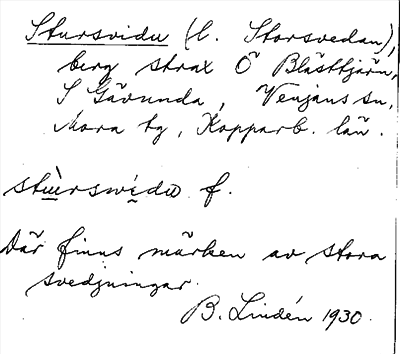 Stursvidu (l. Storsvedan),
berg strax Ö Blästtjärn,
S Gävunda, Venjans sn,
Mora tg, Kopparb. län.
stùrswídu f.
Där finns märken av stora
svedjningar.
B. Lindén 1930.